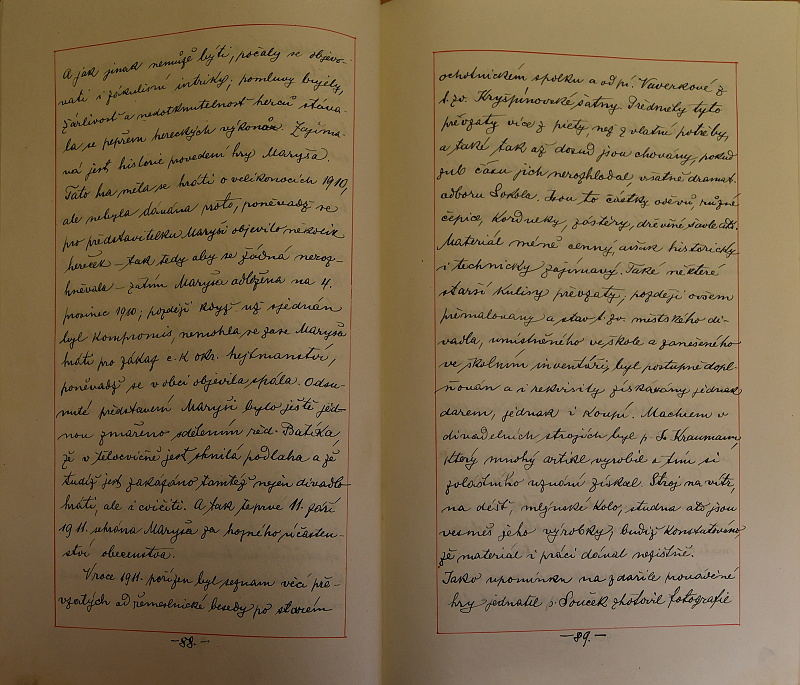 A jak jinak nemůže býti, počaly se objevo-
vati i zákulisní intriky; pomluvy bujely,
žárlivost a nedotknutelnost herců stáva-
la se pepřem hereckých výkonů. Zajíma-
vá jest historie provedení hry Maryša.
Tato hra měla se hráti o velikonocích 1910,
ale nebyla dávána proto, poněvadž se
pro představitelku Maryši objevilo několik
hereček – tak tedy aby se žádná neroz-
hněvala – zatím Maryša odložena na 4.
prosinec 1910; později když už sjednán
byl kompromis, nemohla se zase Maryša
hráti pro zákaz c. k. okr. hejtmanství,
poněvadž se v obci objevila spála. Odsu-
nuté představení Maryši bylo ještě jed-
nou zmařeno sdělením řed. Batíka,
že v tělocvičně jest shnilá podlaha a že
tudíž jest zakázáno tamtéž nejen divadlo
hráti, ale i cvičiti. A tak teprve 11. září
1911 sehrána Maryša za hojného účasten-
ství obecenstva.
V roce 1911. pořízen byl seznam věcí pře-
vzatých od řemeslnické besedy po starém
-88.-
ochotnickém spolku a od pí. Vaverkové z
t. zv. Kryšpínovské šatny. Předměty tyto
převzaty více z piety, než z vlastní potřeby,
a také tak až dosud jsou chovány, pokud
zub času jich nerozhlodal v šatně dramat.
odboru Sokola. Jsou to částky oděvů, různé
čepice, kordíky, zástěry, dřevěné šavle atd.
Materiál méně cenný, avšak historicky
i technicky zajímavý. Také některé
starší kulisy převzaty, později ovšem
přemalovány a stav t. zv. městského di-
vadla, umístěného ve škole a zaneseného
ve školním inventáři, byl postupně dopl-
ňován a i rekvisity získávány jednak
darem, jednak i koupí. Machrem v
divadelních strojích byl p. Kraumann,
který mnohý artikl vyrobil a tím si
zvláštního uznání získal. Stroj na vítr,
na déšť, mlýnské kolo, studna atd jsou
vesměs jeho výrobky; budiž konstatováno
že materiál i práci dával nezištně.
Jako upomínku na zdařilé provádění
hry jednatel p. Souček zhotovil fotografie
-89.-